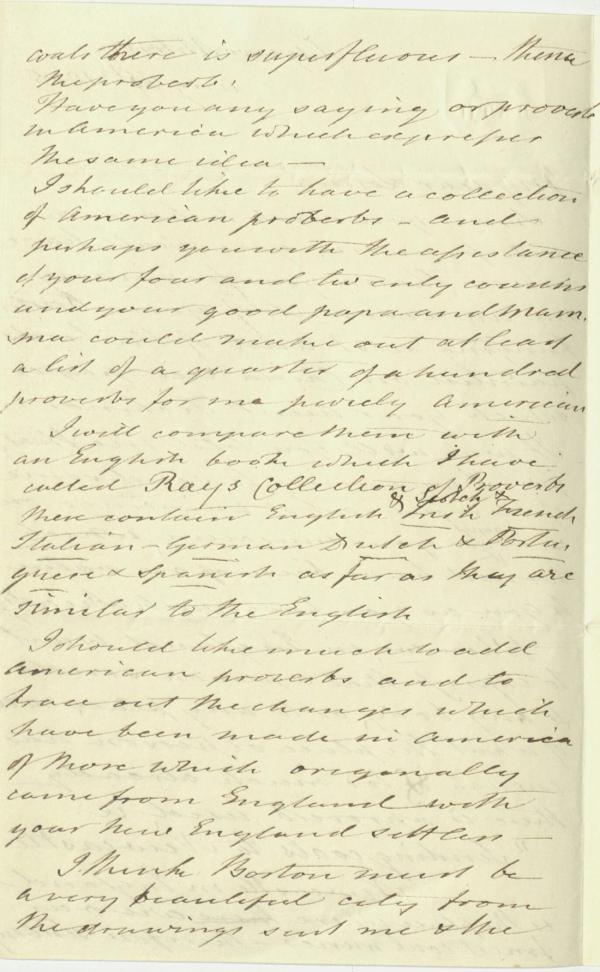 coals there is superfluous – Thence
the proverb.
Have you any saying or proverb
in America which expresses
the same idea —
I should like to have a collection
of American proverbs – and
perhaps you with the assistance
of your four and twenty cousins
and your good papa and Mam.
ma could make out at least
a list of a quarter of a hundred
proverbs for me purely American
I will compare them with
an English book which I have
called Rays Collection of Proverbs
these contain English & Scotch & Irish French
Italian – German Dutch & Portu,
guese & Spanish as far as they are
similar to the English
I should like much to add
American proverbs and to
trace out the changes which
have been made in America
of those which originally
came from England with
your New England settlers —
I think Boston must be
a very beautiful city from
the drawings sent me & the